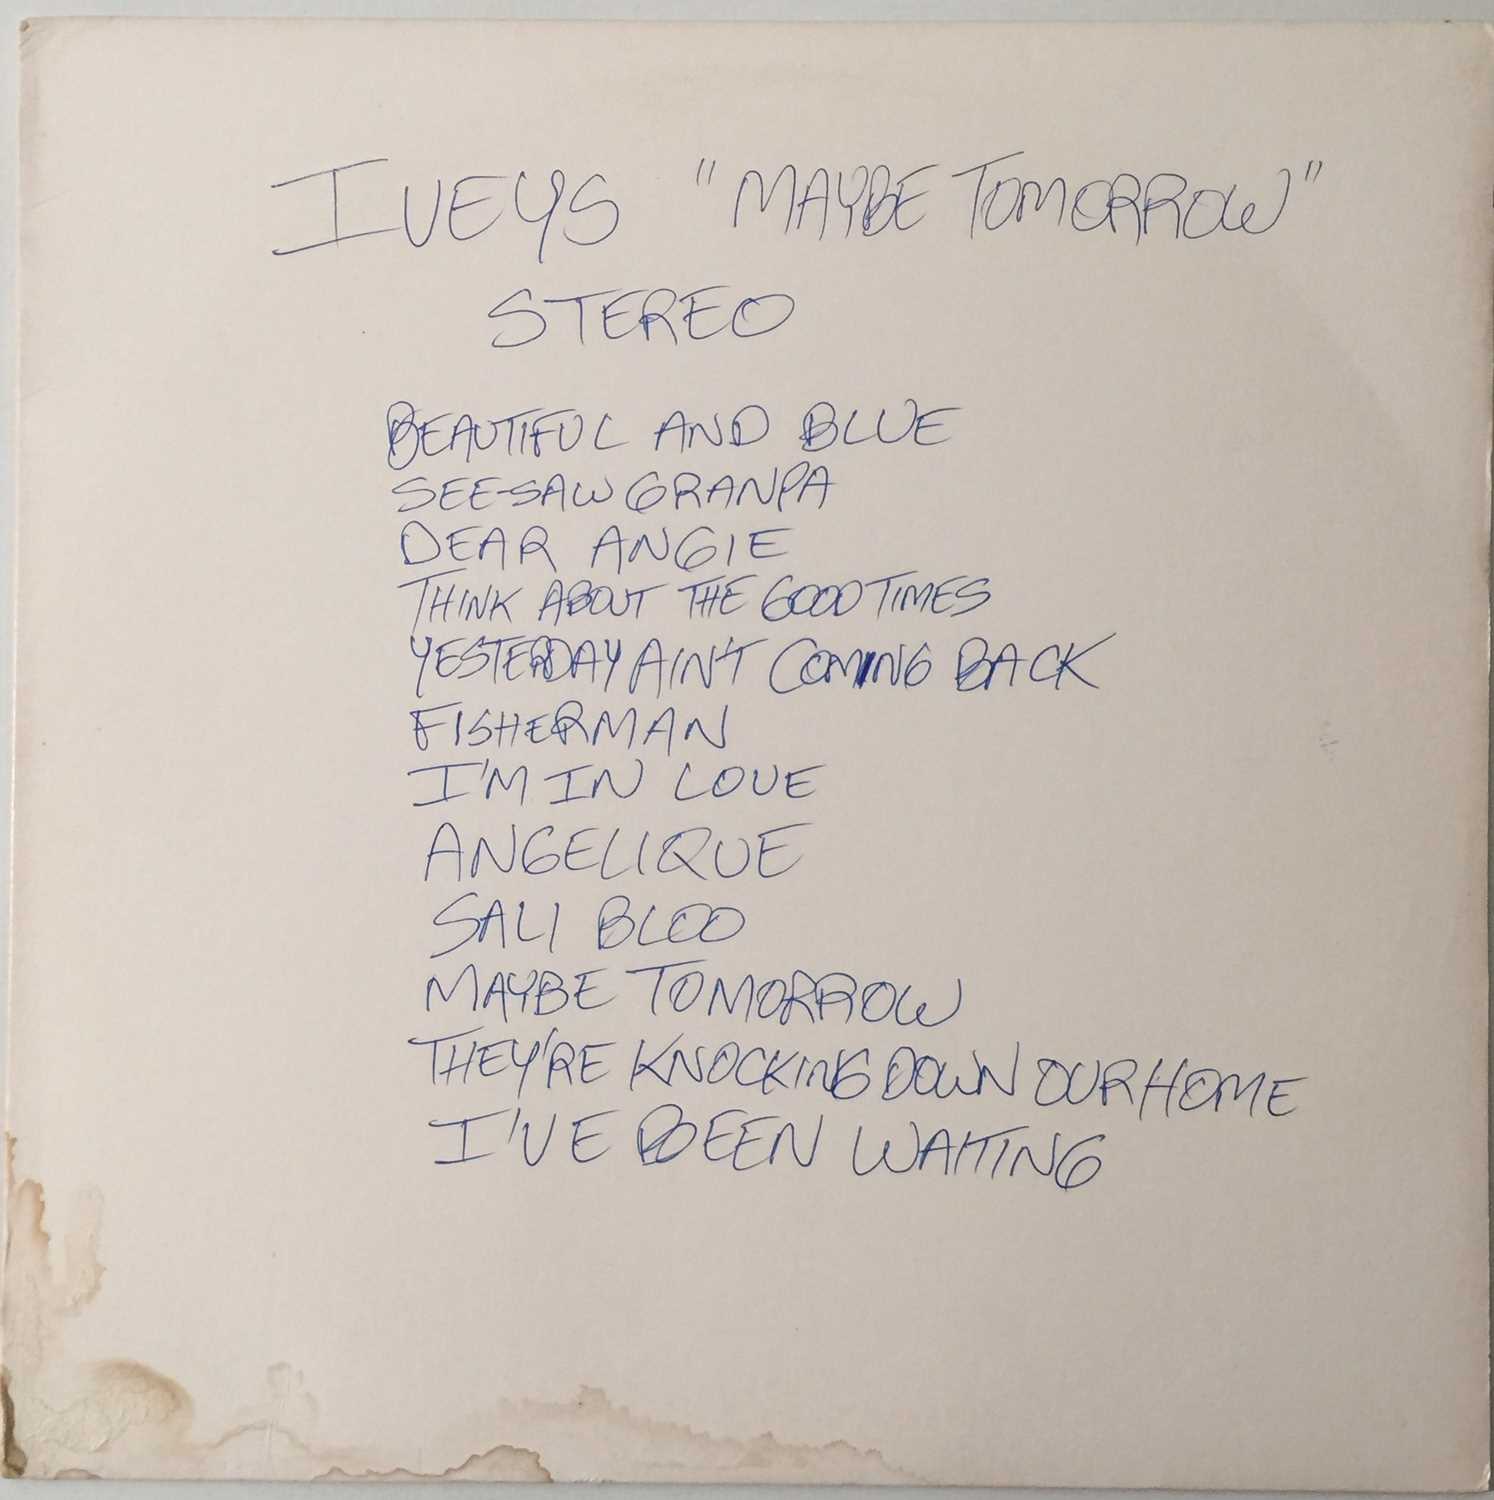 IVEYS "MAYBE TOMORROW"
STEREO
BEAUTIFUL AND BLUE
SEE-SAW GRANPA
DEAR ANGIE
THINK ABOUT THE GOOD TIMES
YESTERDAY AIN'T COMING BACK
FISHERMAN
I'M IN LOVE
ANGELIQUE
SALI BLOO
MAYBE TOMORROW
THEY'RE KNOCKING DOWN OUR HOME
I'VE BEEN WAITING